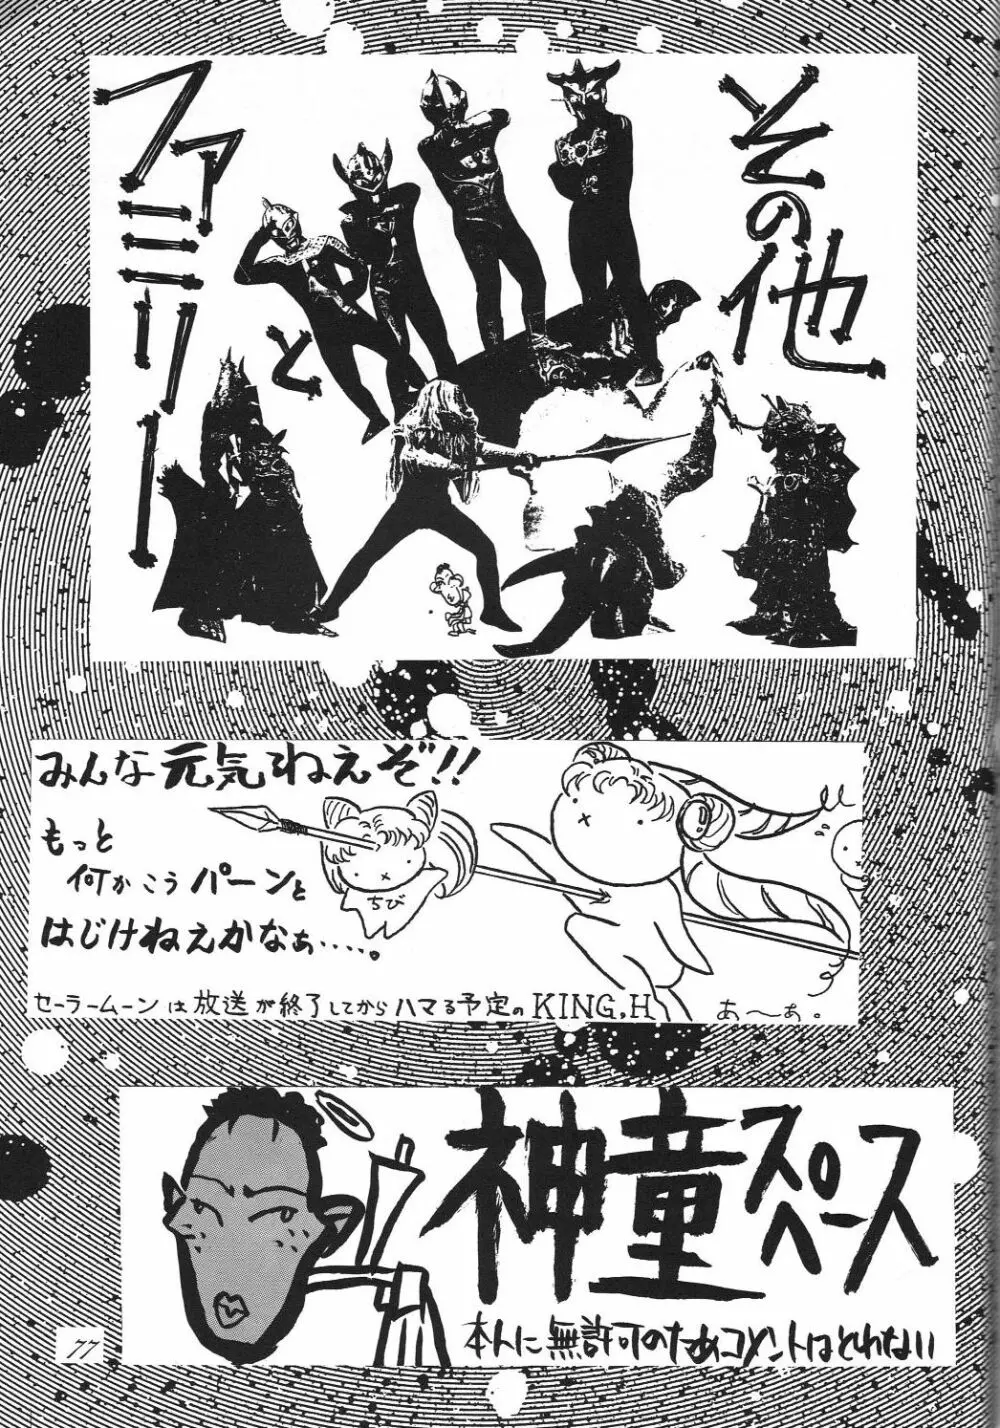 その他
と
ファミリー
みんな元気ねえぞ!!
もっと
何かこうパーンと
はじけねえかなぁ……。
ちび
セーラームーンは放送が終了してからハマる予定のKING.H
あ〜ぁ。
神童スペース
本人に無許可のためコメントはとれない
77